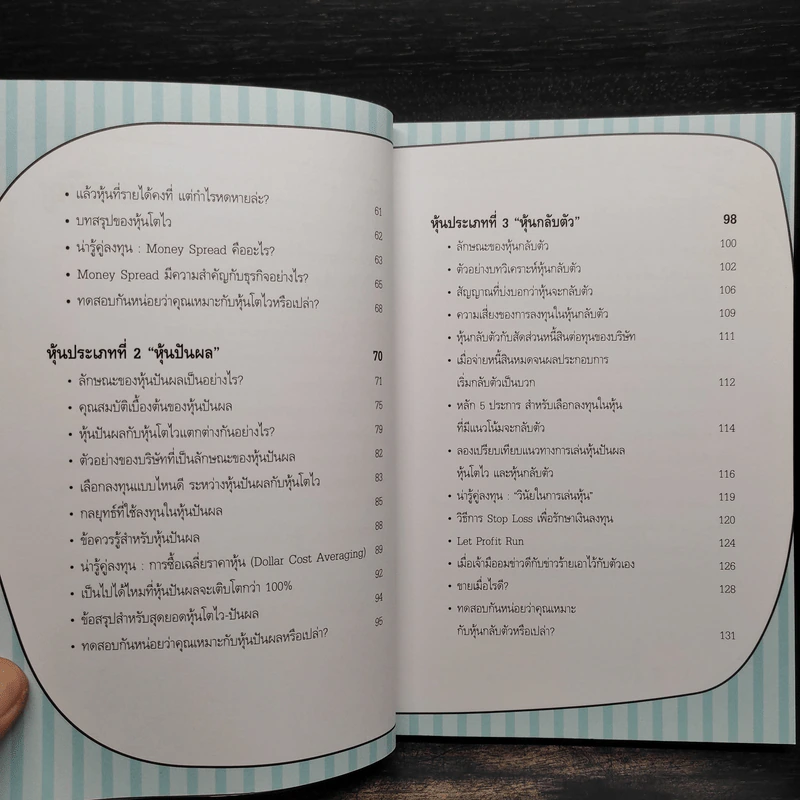 • แล้วหุ้นที่รายได้คงที่ แต่กำไรหดหายล่ะ? 61
• บทสรุปของหุ้นโตไว 62
• น่ารู้คู่ลงทุน : Money Spread คืออะไร? 63
• Money Spread มีความสำคัญกับธุรกิจอย่างไร? 65
• ทดสอบกันหน่อยว่าคุณเหมาะกับหุ้นโตไวหรือเปล่า? 68
หุ้นประเภทที่ 2 “หุ้นปันผล” 70
• ลักษณะของหุ้นปันผลเป็นอย่างไร? 71
• คุณสมบัติเบื้องต้นของหุ้นปันผล 75
• หุ้นปันผลกับหุ้นโตไวแตกต่างกันอย่างไร? 79
• ตัวอย่างของบริษัทที่เป็นลักษณะของหุ้นปันผล 82
• เลือกลงทุนแบบไหนดี ระหว่างหุ้นปันผลกับหุ้นโตไว 83
• กลยุทธ์ที่ใช้ลงทุนในหุ้นปันผล 85
• ข้อควรรู้สำหรับหุ้นปันผล 88
• น่ารู้คู่ลงทุน : การซื้อเฉลี่ยราคาหุ้น (Dollar Cost Averaging) 89
• เป็นไปได้ไหมที่หุ้นปันผลจะเติบโตกว่า 100% 92
• ข้อสรุปสำหรับสุดยอดหุ้นโตไว-ปันผล 94
• ทดสอบกันหน่อยว่าคุณเหมาะกับหุ้นปันผลหรือเปล่า? 95
หุ้นประเภทที่ 3 “หุ้นกลับตัว” 98
• ลักษณะของหุ้นกลับตัว 100
• ตัวอย่างบทวิเคราะห์หุ้นกลับตัว 102
• สัญญาณที่บ่งบอกว่าหุ้นจะกลับตัว 106
• ความเสี่ยงของการลงทุนในหุ้นกลับตัว 109
• หุ้นกลับตัวกับสัดส่วนหนี้สินต่อทุนของบริษัท 111
• เมื่อจ่ายหนี้สินหมดจนผลประกอบการ
เริ่มกลับตัวเป็นบวก 112
• หลัก 5 ประการ สำหรับเลือกลงทุนในหุ้น
ที่มีแนวโน้มจะกลับตัว 114
• ลองเปรียบเทียบแนวทางการเล่นหุ้นปันผล
หุ้นโตไว และหุ้นกลับตัว 116
• น่ารู้คู่ลงทุน : “วินัยในการเล่นหุ้น” 119
• วิธีการ Stop Loss เพื่อรักษาเงินลงทุน 120
• Let Profit Run 124
• เมื่อเจ้ามืออมข่าวดีกับข่าวร้ายเอาไว้กับตัวเอง 126
• ขายเมื่อไรดี? 128
• ทดสอบกันหน่อยว่าคุณเหมาะ
กับหุ้นกลับตัวหรือเปล่า? 131